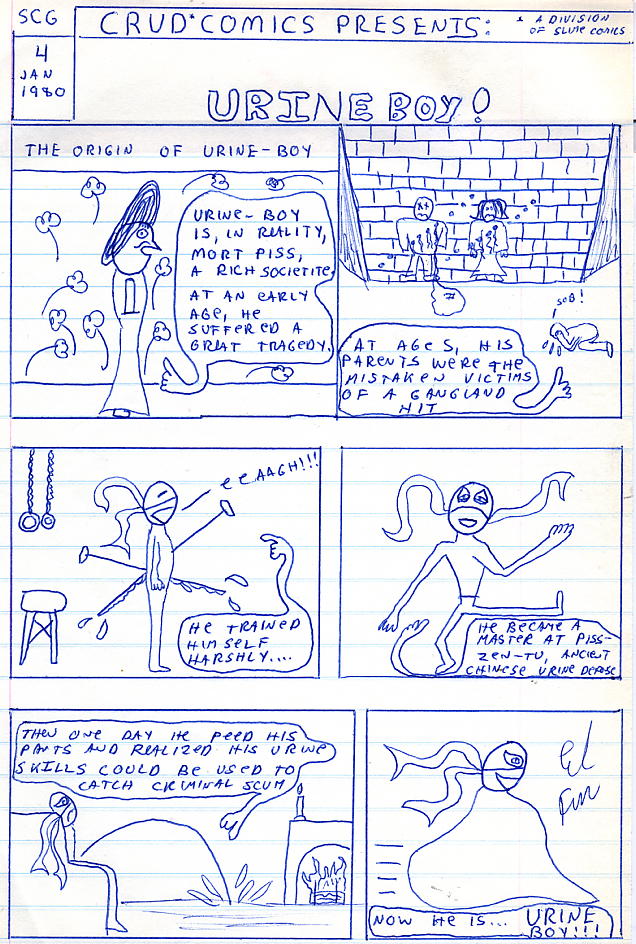 SCG
4
JAN
1980
CRUD*COMICS PRESENTS:
* A DIVISION
OF SLURP COMICS
URINE BOY!
THE ORIGIN OF URINE-BOY
URINE-BOY
IS, IN REALITY,
MORT PISS,
A RICH SOCIETITE.
AT AN EARLY
AGE, HE
SUFFERED A
GREAT TRAGEDY.
SOB!
AT AGE 5, HIS
PARENTS WERE THE
MISTAKEN VICTIMS
OF A GANGLAND
HIT
eeAAGH!!!
HE TRAINED
HIMSELF
HARSHLY....
HE BECAME A
MASTER AT PISS-
ZEN-TU, ANCIENT
CHINESE URINE DEFENSE
THEN ONE DAY HE PEED HIS
PANTS AND REALIZED HIS URINE
SKILLS COULD BE USED TO
CATCH CRIMINAL SCUM
El
Fin
NOW HE IS... URINE
BOY!!!